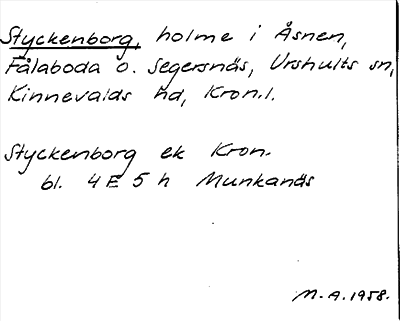 Styckenborg, holme i Åsnen,
Fålaboda o. Segersnäs, Urshults sn,
Kinnevalds hd, Kron.l.
Styckenborg ek Kron.
bl. 4E 5h Munkanäs
M.A. 1958.